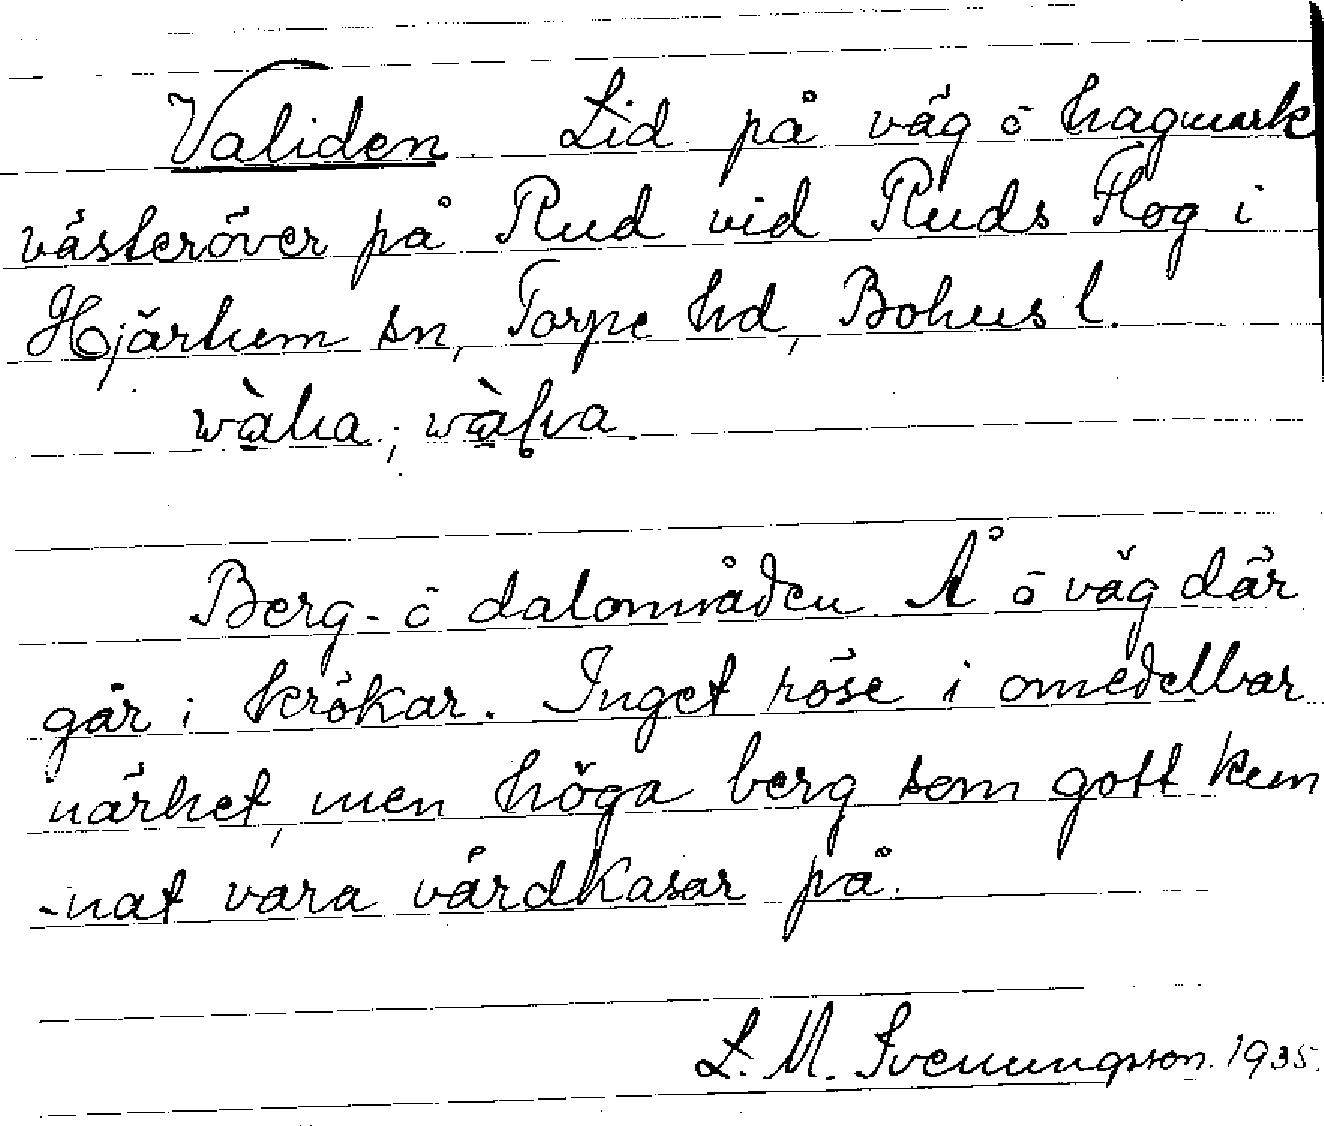 Validen. Lid på väg ō hagmark
västeröver på Rud vid Ruds Flog i
Hjärtum sn, Torpe hd, Bohus l.
Berg- ō dalområden. Å ō väg där
går i krökar. Inget röse i omedelbar
närhet, men höga berg som gott kun
-nat vara vårdkasar på.
L. M. Svenungsson. 1935.